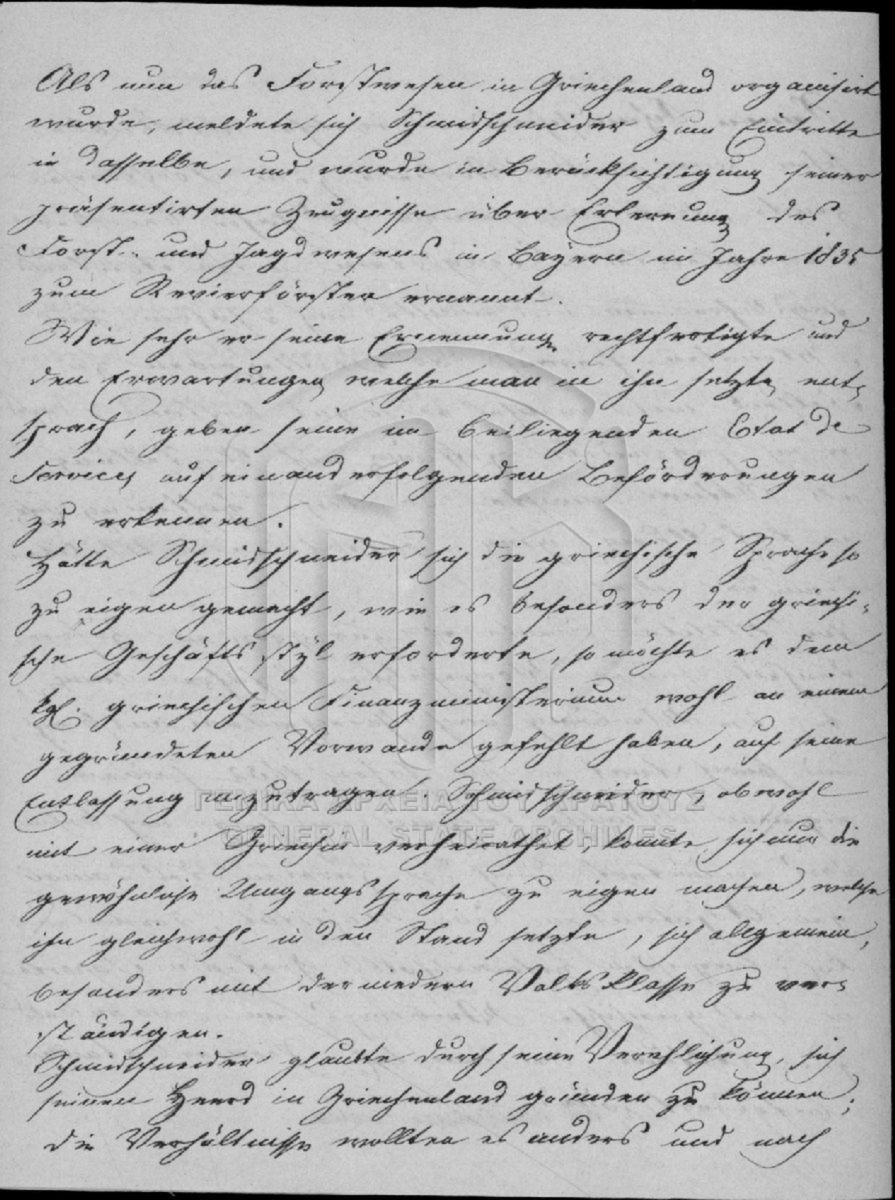 Als nun das Forstwesen in Griechenland organisirt
wurde, meldete sich Schmidschneider zum Eintritte
in dasselbe, und wurde in Berücksichtigung seiner
präsentirten Zeugnisse über Erlernung des
Forst- und Jagdwesens in Bayern im Jahre 1835
zum Revierförster ernannt.
Wie sehr er seine Ernennung rechtfertigte und
den Erwartungen welche man in ihn setzte, ent-
sprach, geben seine im beiliegenden Etat de
Services aufeinanderfolgenden Beförderungen
zu erkennen.
Hätte Schmidschneider sich die griechische Sprache so
zu eigen gemacht, wie es besonders der griechi-
sche Geschäfts styl erforderte, so möchte es dem
kgl. griechischen Finanzministerium wohl an einem
gegründeten Vorwande gefehlt haben, auf seine
Entlassung anzutragen. Schmidschneider, obwohl
mit einer Griechin verheirathet, konnte sich nur die
gewöhnliche Umgangssprache zu eigen machen, welche
ihn gleichwohl in den Stand setzte, sich allgemein,
besonders mit der niedern Volksklasse zu ver-
ständigen.
Schmidschneider glaubte durch seine Verehlichung, sich
seinen Heerd in Griechenland gründen zu können;
die Verhältnisse wollten es anders und nach
ΓΕΝΙΚΑ ΑΡΧΕΙΑ ΤΟΥ ΚΡΑΤΟΥΣ
GENERAL STATE ARCHIVES